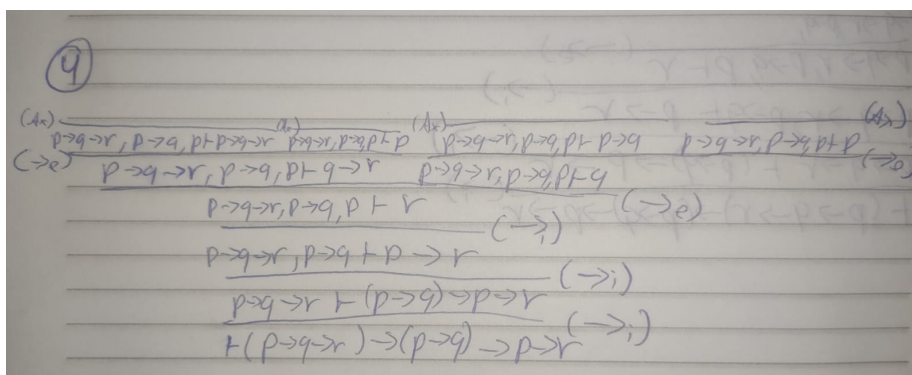 4
(Ax) (ax) (Ax) (Ax)
p→q→r, p→q, p ⊢ p→q→r p→q→r, p→q, p ⊢ p p→q→r, p→q, p ⊢ p→q p→q→r, p→q, p ⊢ p
(→e) (→e)
p→q→r, p→q, p ⊢ q→r p→q→r, p→q, p ⊢ q
(→e)
p→q→r, p→q, p ⊢ r
(→i)
p→q→r, p→q ⊢ p→r
(→i)
p→q→r ⊢ (p→q)→p→r
(→i)
⊢ (p→q→r)→(p→q)→p→r